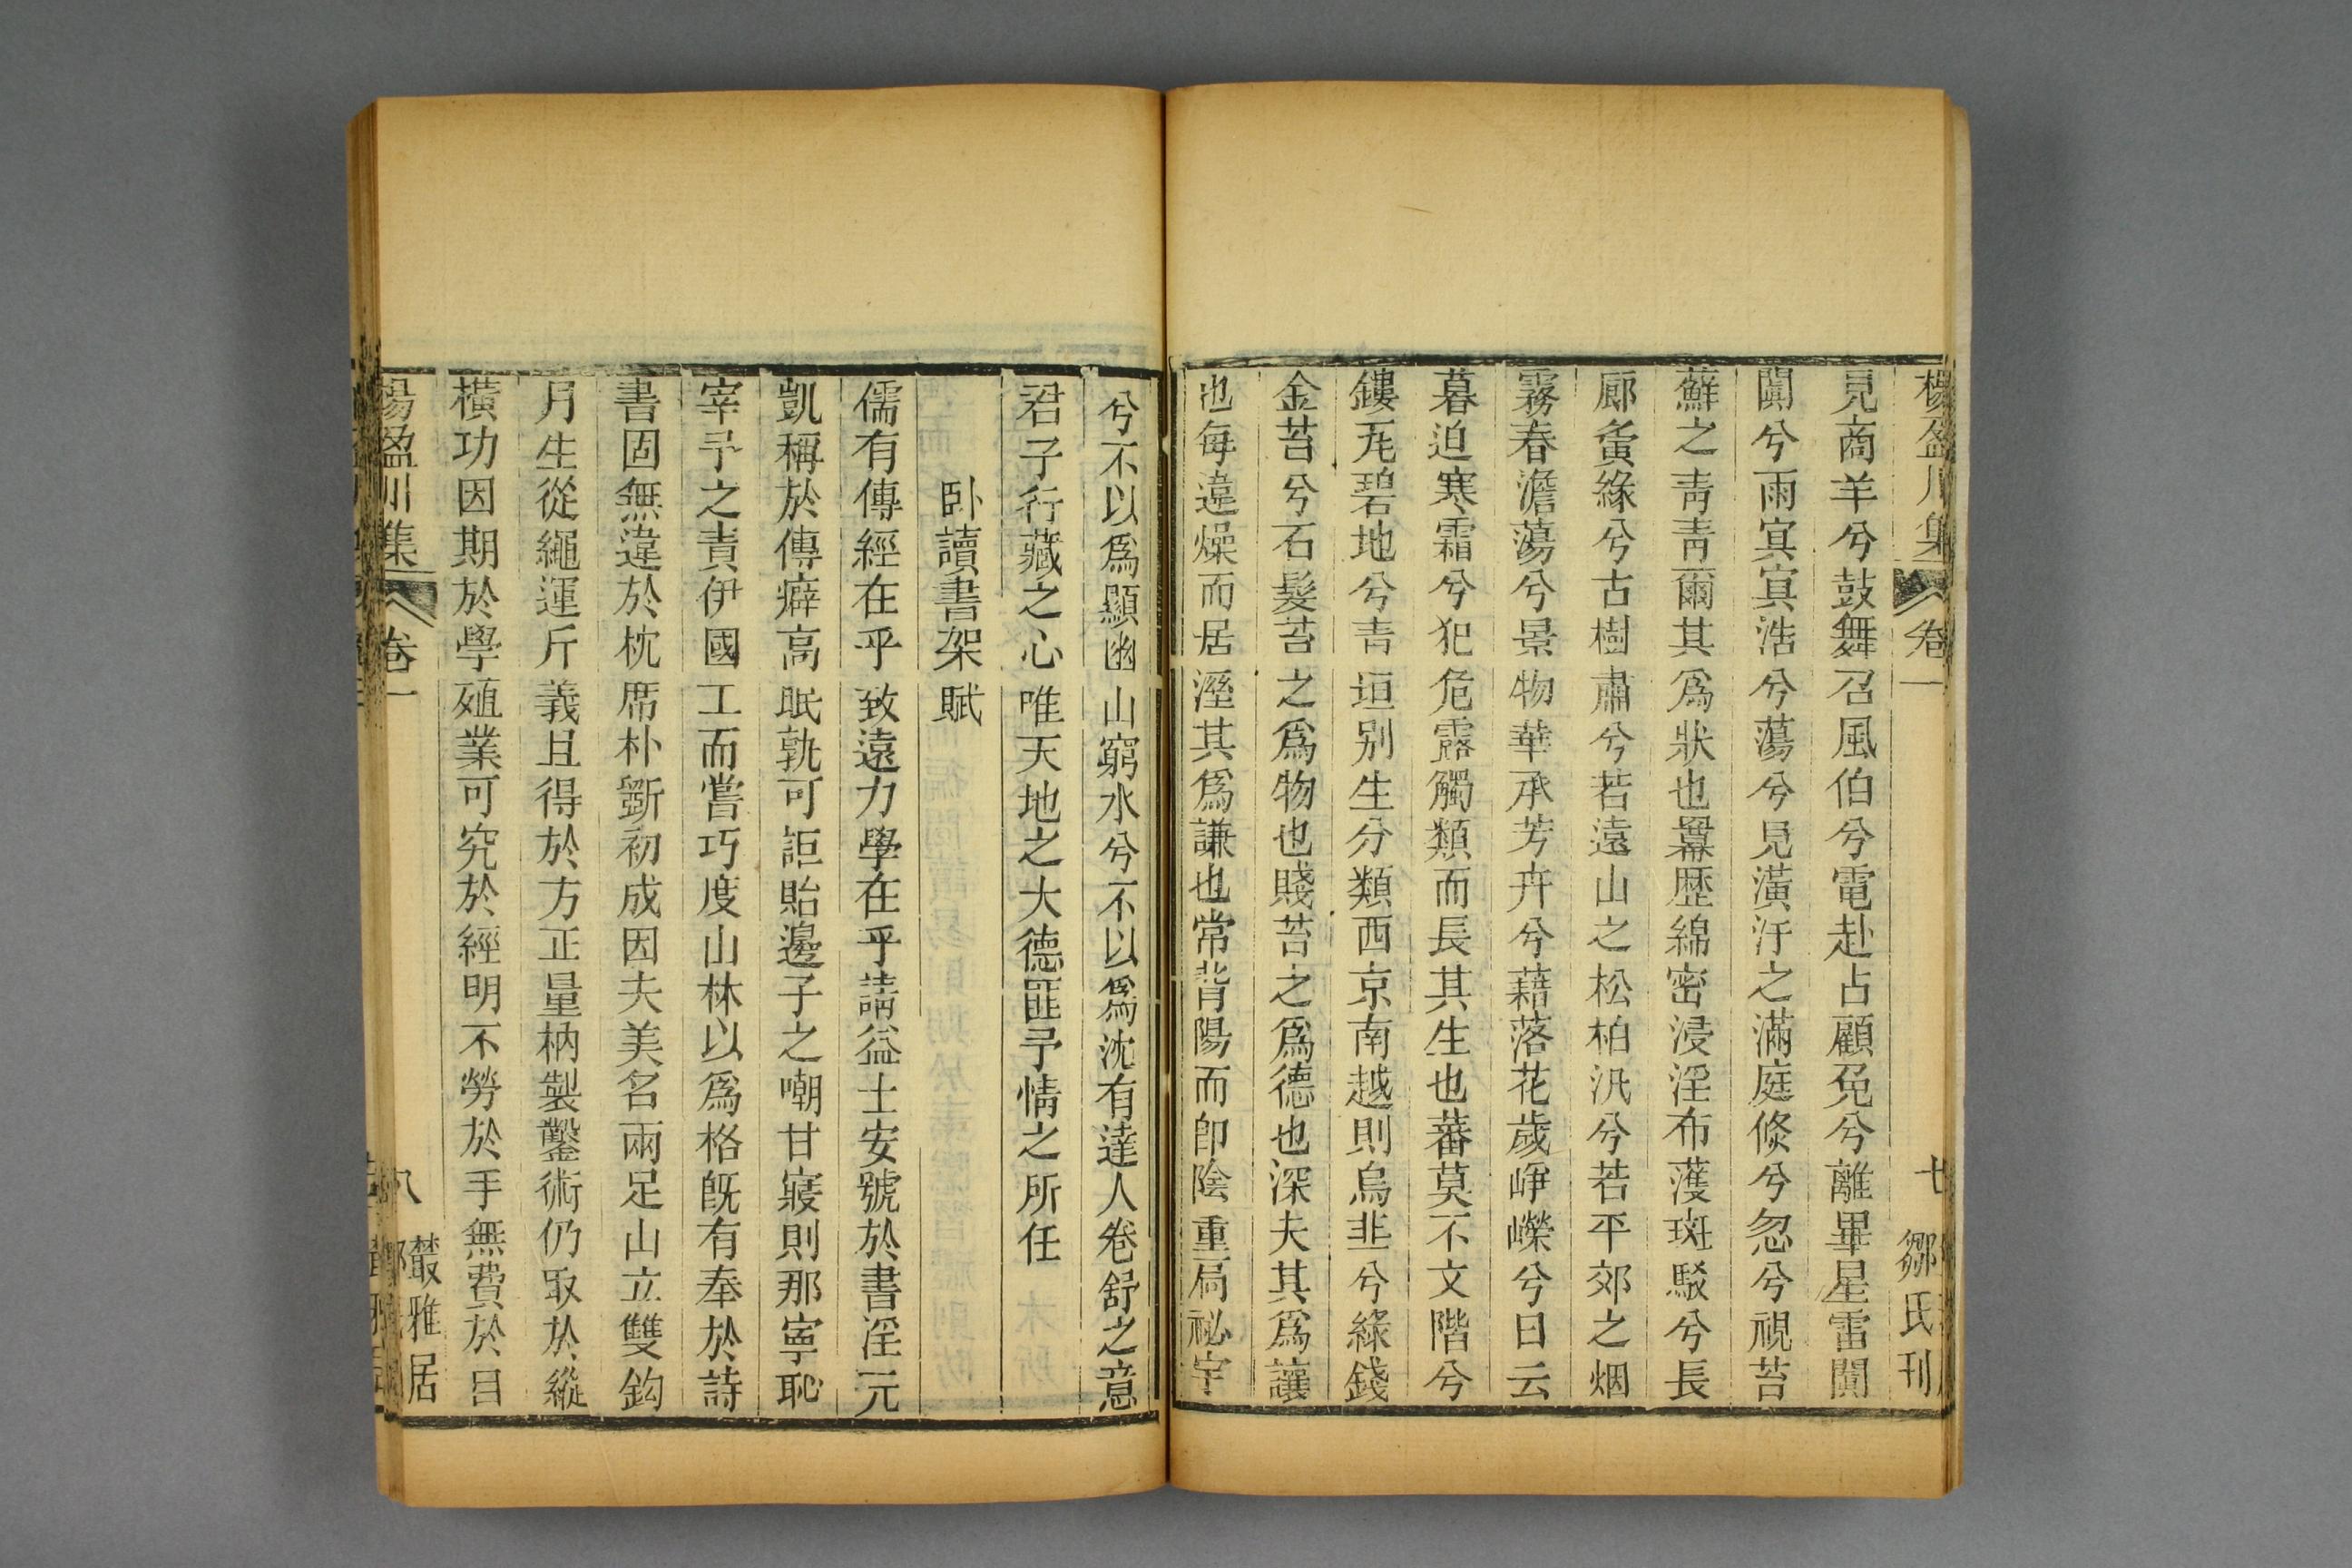 楊盈川集 卷一 七 鄒氏刊
見商羊兮鼓舞召風伯兮電赴占顧兔兮離畢星雷闐
闐兮雨㝠㝠浩兮蕩兮見潢汙之滿庭倏兮忽兮視苔
蘚之靑靑爾其爲狀也羃歴綿密浸淫布濩斑駁兮長
廊夤緣兮古樹肅兮若遠山之松柏汎兮若平郊之烟
霧春澹蕩兮景物華承芳卉兮藉落花歲崢嶸兮日云
暮迫寒霜兮犯危露觸類而長其生也蕃莫不文階兮
鏤瓦碧地兮青垣别生分類西京南越則烏韭兮綠錢
金苔兮石髮苔之爲物也賤苔之爲德也深夫其爲讓
也每違燥而居溼其爲謙也常背陽而卽陰重扃祕宇
兮不以爲顯幽山窮水兮不以爲沈有達人卷舒之意
君子行藏之心唯天地之大德匪予情之所任
臥讀書架賦
儒有傳經在乎致遠力學在乎請益士安號於書淫元
凱稱於傳癖高眠孰可詎貽邊子之嘲甘寢則那寕恥
宰予之責伊國工而嘗巧度山林以爲格旣有奉於詩
書固無違於枕席朴斵初成因夫美名兩足山立雙鈎
月生從繩運斤義且得於方正量枘製鑿術仍取於縱
橫功因期於學殖業可究於經明不勞於手無費於目
楊盈川集 卷一 八 叢雅居